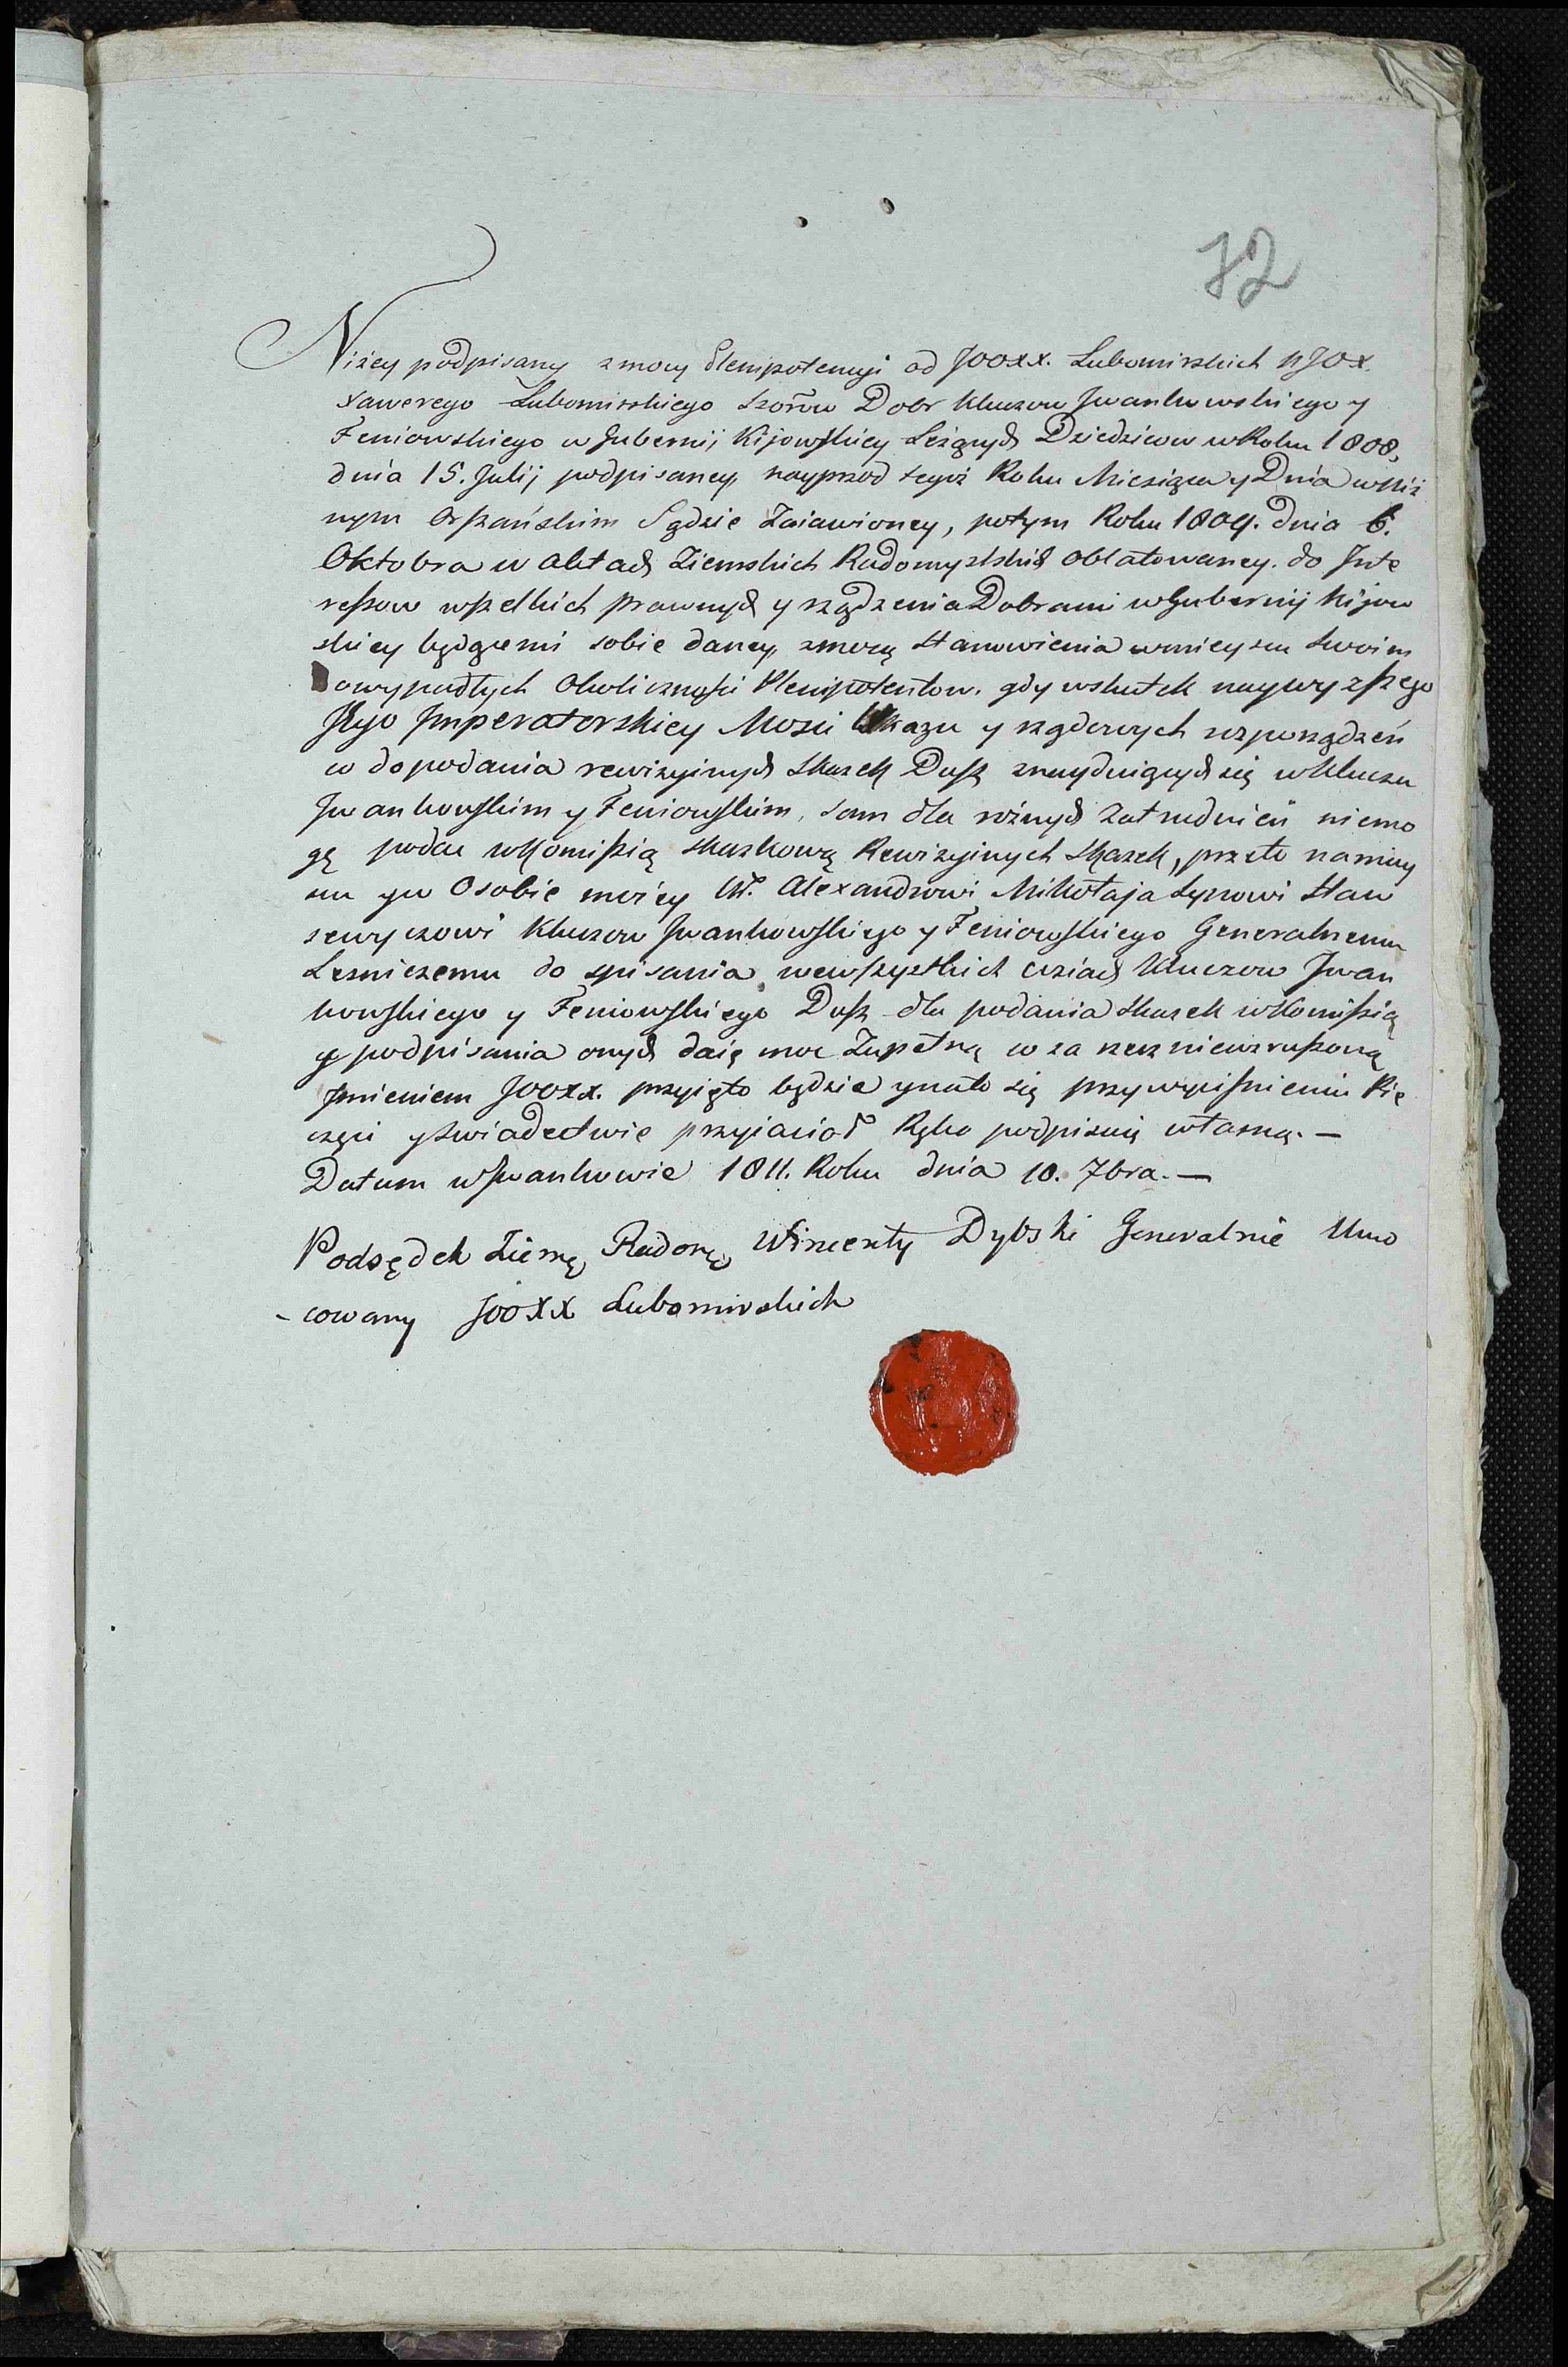 72
Niżey podpisany z mocy Plenipotencyi od JOOXX. Lubomirskich NJOX.
Xawerego Lubomirskiego Dobr Kluczow Jwankowskiego y
Feniowskiego w Gubernij Kijowskiey Leżących Dziedzicow w Roku 1808,
dnia 15. Julij podpisaney, nayprzod tegoż Roku Miesiąca y Dnia w Niż
nym Orszańskim Sądzie Zaiawioney, potym Roku 1809. dnia 6.
Oktobra w Aktach Ziemskich Radomyslskich oblatowaney. do Jnte
ressow wszelkich prawnych y rządzenia Dobrami w Gubernij Kijow
skiey będącemi sobie daney, z mocą stanowienia w mieyscu swoim
owypadłych okolicznosci Plenipotentow. gdy wskutek naywyższego
Jego Jmperatorskiey Mosci Ukazu y rządowych rozporządzeń
w do podania rewizyinych skazek Dusz znayduiących się w Kluczu
Jwankowskim y Feniowskim, sam dla rożnych Zatrudnień niemo
gę podac w Komissią skazkową Rewizyinych Skazek, przeto na miey
scu y w Osobie moiey W. Alexandrowi Mikołaja Synowi Staw
Kluczow Jwankowskiego y Feniowskiego Generalnemu
Lesniczemu do spisania wewszystkich wsiach Kluczow Jwan
kowskiego y Feniowskiego Dusz dla podania skazek w Komissią
y podpisania onych daię moc Zupełną co za rzecz niewzruszoną
Jmieniem JOOXX. przyięto będzie y na to się przy wyciśnieniu Pie
częci y swiadectwie przyiacioł Ręką podpisuię własną. —
Datum w Jwankowie 1811. Roku dnia 10. 7bra. —
Podsędek Ziems Radoms Wincenty Dybski Generalnie Umo
-cowany JOOXX Lubomirskich